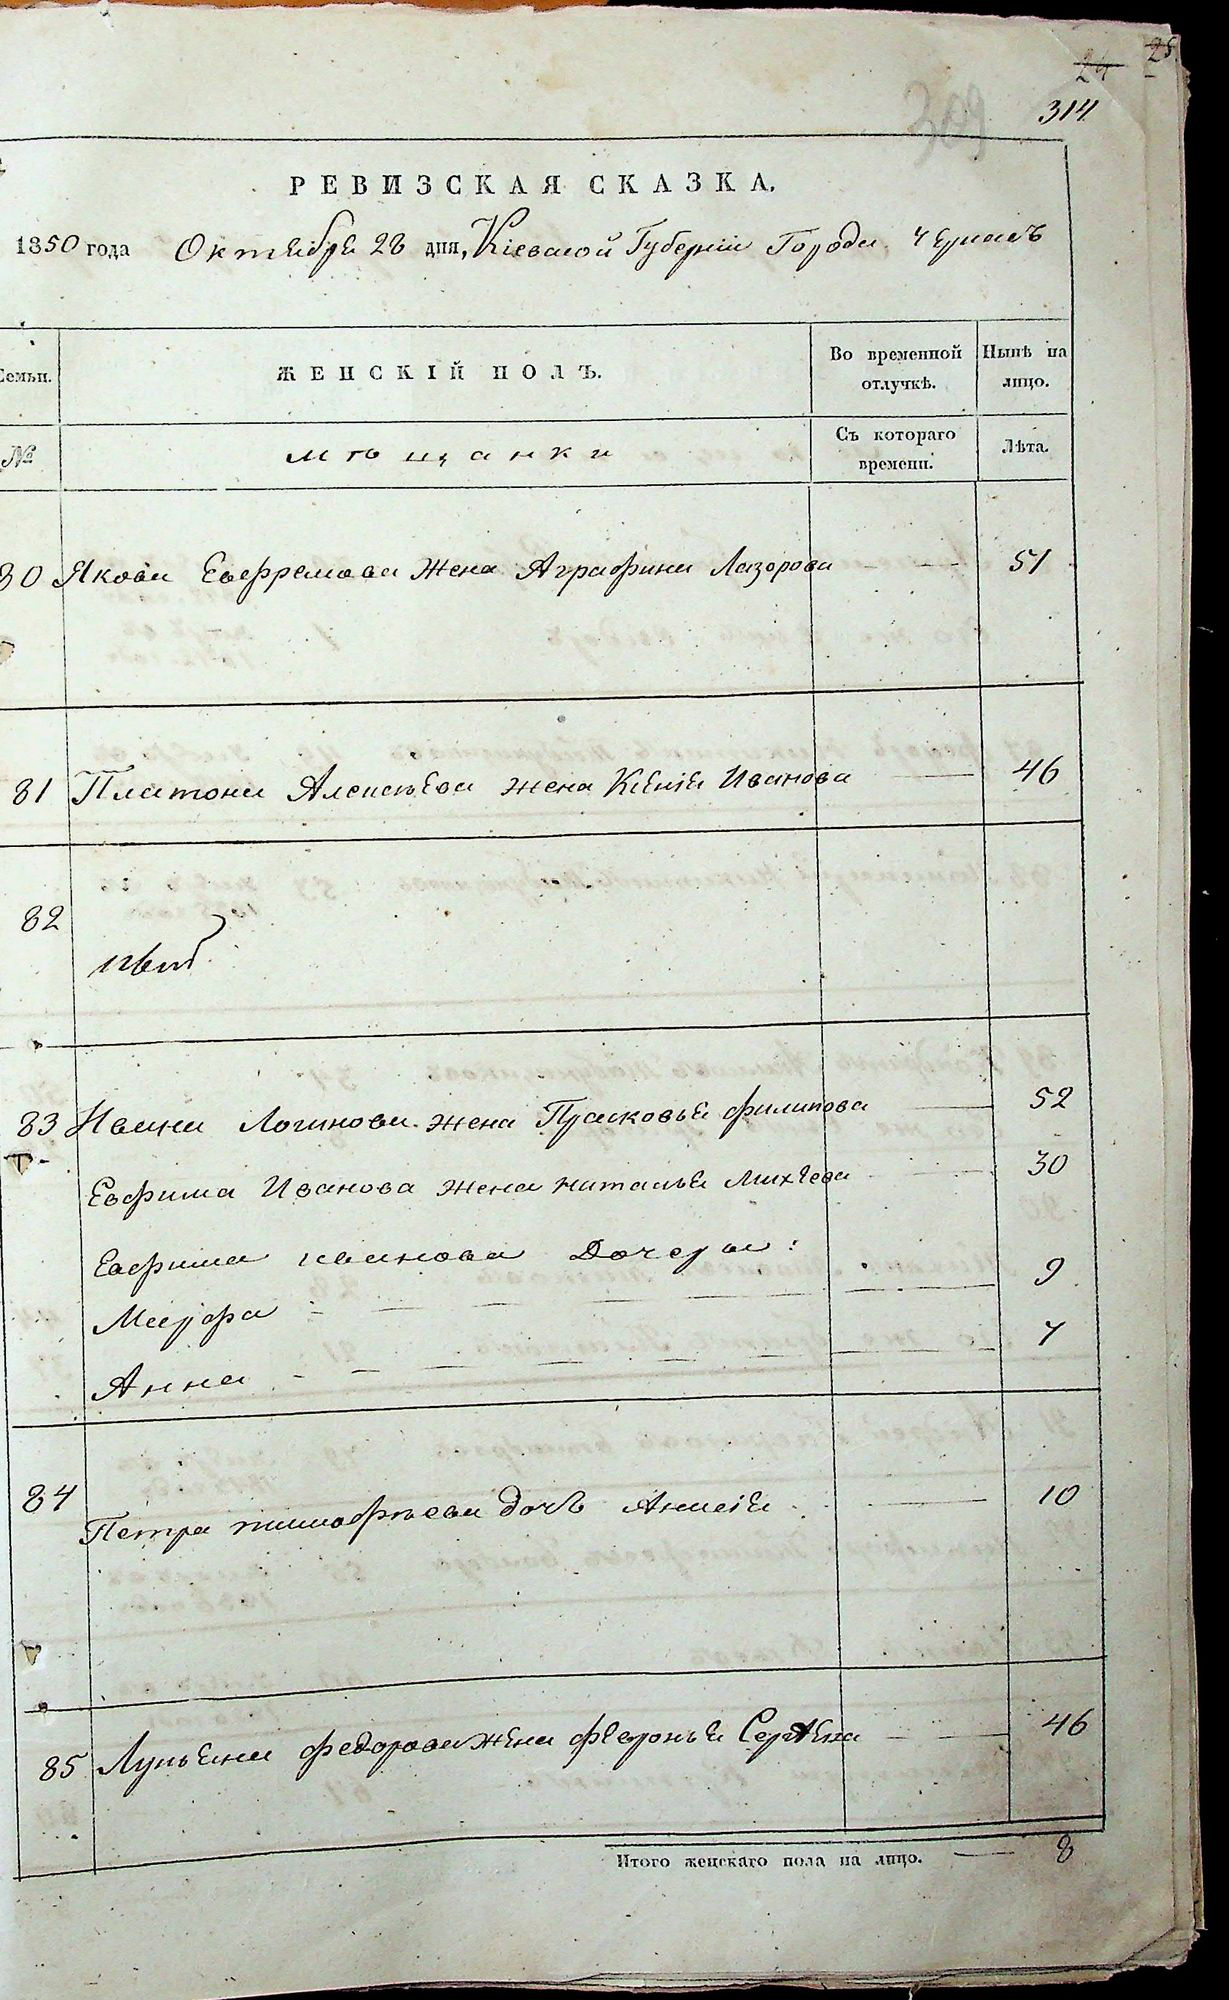 24 25
314
309
РЕВИЗСКАЯ СКАЗКА.
1850 года Октября 28 дня, Кіевской Губерніи Города Черкасъ
Семьи. ЖЕНСКІЙ ПОЛЪ. Во временной отлучкѣ. Нынѣ на лицо.
№ мѣщанки Съ котораго времени. Лѣта.
80 Якова Евфремова жена Аграфина Лазорова 51
81 Платона Алексѣева жена Ксенія Иванова 46
82
нѣтъ
83 Ивана Логинова жена Прасковья Филипова 52
Евфима Иванова жена Наталья Михѣева 30
Евфима Иванова дочери:
Марфа 9
Анна 7
84 Петра Тимофѣева дочь Анисія 10
85 Лукьяна Федорова жена Февронья Сергѣева 46
Итого женскаго пола на лицо. 8